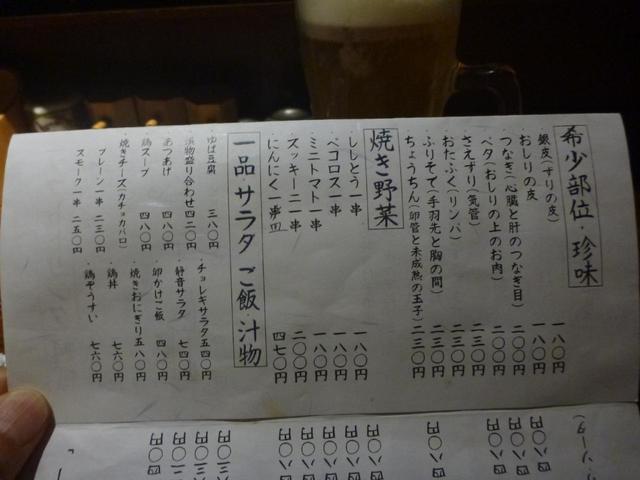 希少部位・珍味
銀皮(ずりの皮) 一八〇円
おしりの皮 一八〇円
つなぎ(心臓と肝のつなぎ目) 二〇〇円
ペタ(おしりの上のお肉) 二〇〇円
さえずり(気管) 二三〇円
おたふく(リンパ) 二三〇円
ふりそで(手羽先と胸の間) 二三〇円
ちょうちん(卵管と未成熟の玉子) 二三〇円
焼き野菜
・ししとう一串 一八〇円
・ペコロス一串 一八〇円
・ミニトマト一串 一八〇円
・ズッキーニ一串 二〇〇円
・にんにく一歩皿 四七〇円
一品・サラダ ご飯・汁物
・ゆば豆腐 三八〇円
・漬物盛り合わせ 四二〇円
・あつあげ 四八〇円
・鶏スープ 四八〇円
・焼きチーズ(カチョカバロ)
プレーン一串 二三〇円
スモーク一串 二五〇円
・チョレギサラダ 五四〇円
・静音サラダ 七四〇円
・卵かけご飯 四八〇円
・焼きおにぎり 五八〇円
・鶏丼 七六〇円
・鶏ぞうすい 七六〇円